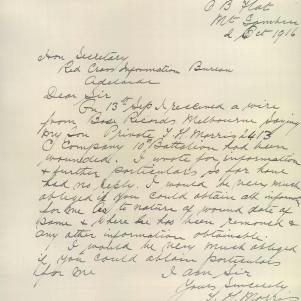 O B Flat
Mt Gambier
2 Oct 1916
Hon Secretary
Red Cross Information Bureau
Adelaide
Dear Sir
On 13th Sep I received a wire
from Base Records Melbourne saying
my son Private J H Morris 2413
C Company 10th Battalion had been
wounded. I wrote for information
& further particulars so far have
had no reply. I would be very much
obliged if you could obtain all inform
for me as to nature of wound date of
same & where he has been removed &
any other information obtainable.
I would be very much obliged
if you could obtain particulars
for me
I am Sir
Yours Sincerely
Morris